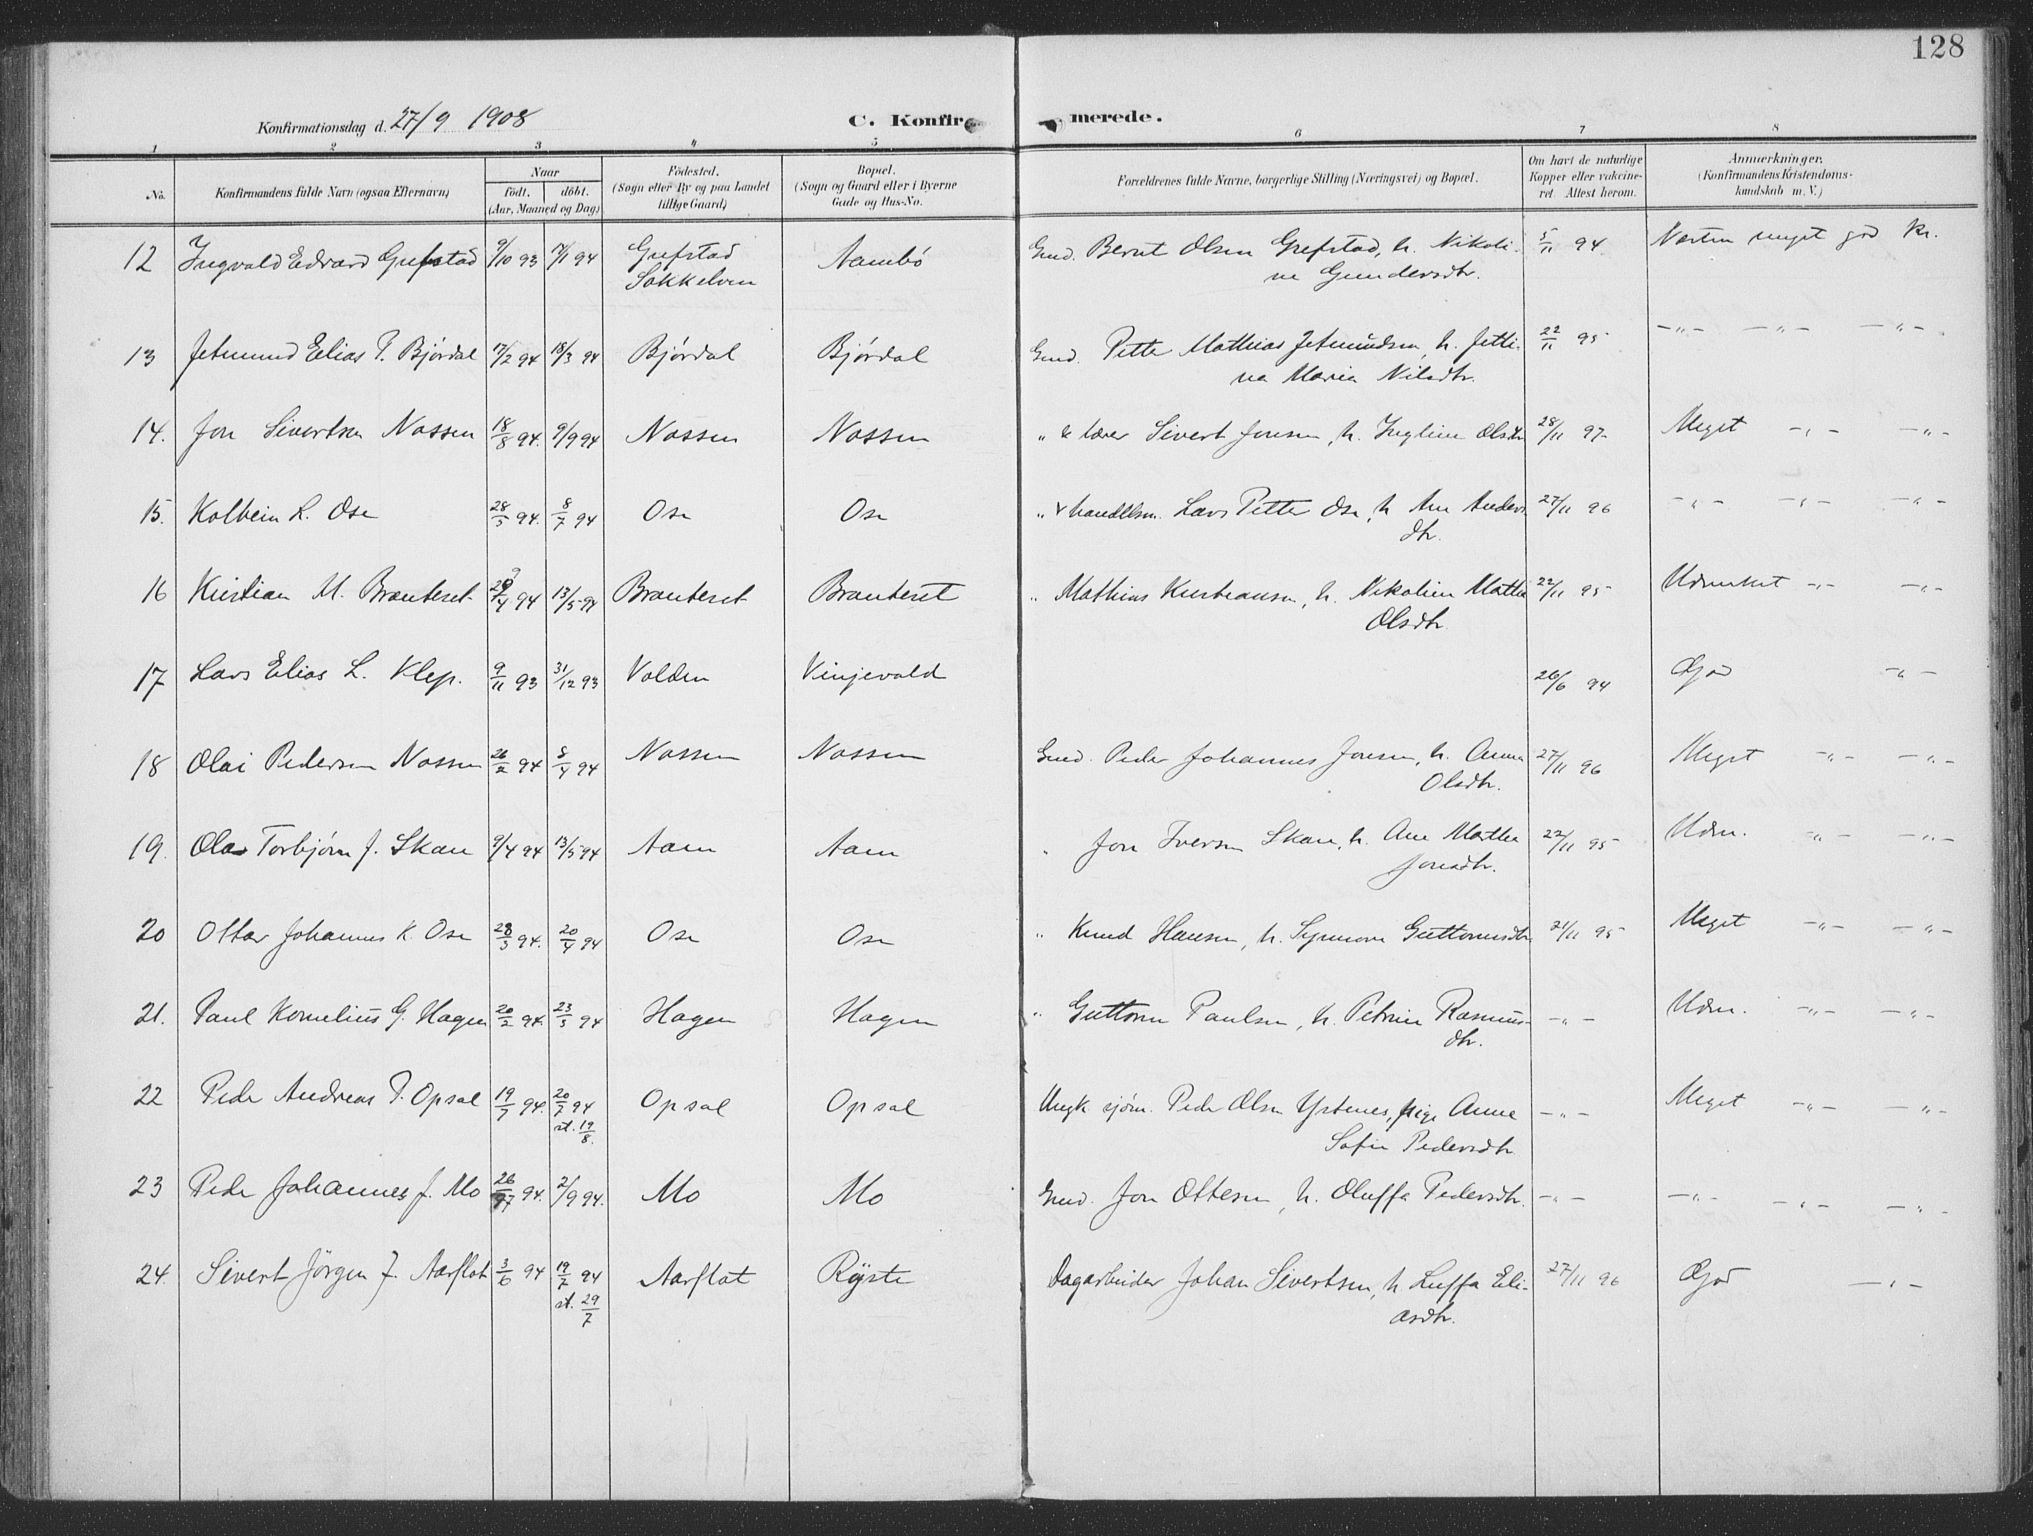 128
Konfirmationsdag d. 27/9 1908
C. Konfir merede.
1 2 3 4 5 6 7 8
No. Konfirmandens fulde Navn (ogsaa Efternavn) Naar födt. döbt. (Aar, Maaned og Dag) Födested. (Sogn eller By og paa Landet tillige Gaard) Bopæl. (Sogn og Gaard eller i Byerne Gade og Hus-No. Forældrenes fulde Navne, borgerlige Stilling (Næringsvei) og Bopæl. Om havt de naturlige Kopper eller vakcineret. Attest herom. Anmærkninger. (Konfirmandens Kristendomskundskab m. V.)
12 Ingvald Edvard Grefstad 9/10 93 94 Grefstad Aambö Gmd. Bernt Olsen Grefstad, h. Nikoli- 5/11 94. Næsten meget god kr.
Søkkelven ne Gundersdtr.
13 Jetmund Elias P. Bjørdal 17/2 94 18/3 94 Bjørdal Bjørdal Gmd. Petter Mathias Jetmundsen, h. Jetti- 22/11 95 -"- -"- -"-
na Maria Nilsdtr.
14. Jon Sivertsen Nossen 18/8 94. 9/9 94 Nossen Nossen " & lærer Sivert Jonsen, h. Ingline Olsdtr 28/11 97 Meget -"- -"-
15. Kolbein L. Ose 28/5 94. 8/7 94 Ose Ose " & handelsm. Lars Petter Ose, h. Ane Anders 27/11 96 -"- -"- -"-
dtr.
16 Kristian M. Brauteset 94 13/5 94 Brauteset Brauteset " Mathias Kristiansen, h. Nikoline Marthe 22/11 95 Udmerket -"- -"-
Olsdtr
17 Lars Elias L. Klep. 9/11 93 31/12 93 Volden Vinjevold 26/6 94 God -"-
18 Olai Pedersen Nossen 26/2 94 8/4 94 Nossen Nossen Gmd. Peder Johannes Jonsen, h. Anna 27/11 96 Meget -"- -"-
Olsdtr.
19. Ola Torbjørn J. Skaar 9/4 94 13/5 94 Aam Aam " Jon Iversen Skaar, h. Ane Marthe 22/11 95 Udm. -"- -"-
Jonsdtr.
20 Ottar Johannes K. Ose 28/3 94. 20/4 94 Ose Ose " Knud Hansen, h. Synnove Guttormsdtr 21/11 95 Meget -"- -"-
21. Paul Kornelius G. Hagen 20/2 94. 23/3 94 Hagen Hagen " Guttorm Paulsen, h. Petrine Rasmus- -"- Udm. -"- -"-
dtr.
22 Peder Andreas P. Opsal 19/7 94. 20/7 94 Opsal Opsal Ungk. sjøm. Peder Olsen Ystenes, pige Anne -"- Meget -"- -"-
st. 19/8. Sofie Pedersdtr
23 Peder Johannes J. Mo 26/7 94. 2/9 94. Mo Mo Gmd. Jon Ottesen, h. Oluffa Pedersdtr. -"- -"- -"- -"-
24. Sivert Jörgen J. Aarflot 3/6 94 19/7 94 Aarflot Røyste Dagarbeider Johan Sivertsen, h. Luffa Eli- 27/11 96 God -"-
st. 29/7 asdtr.